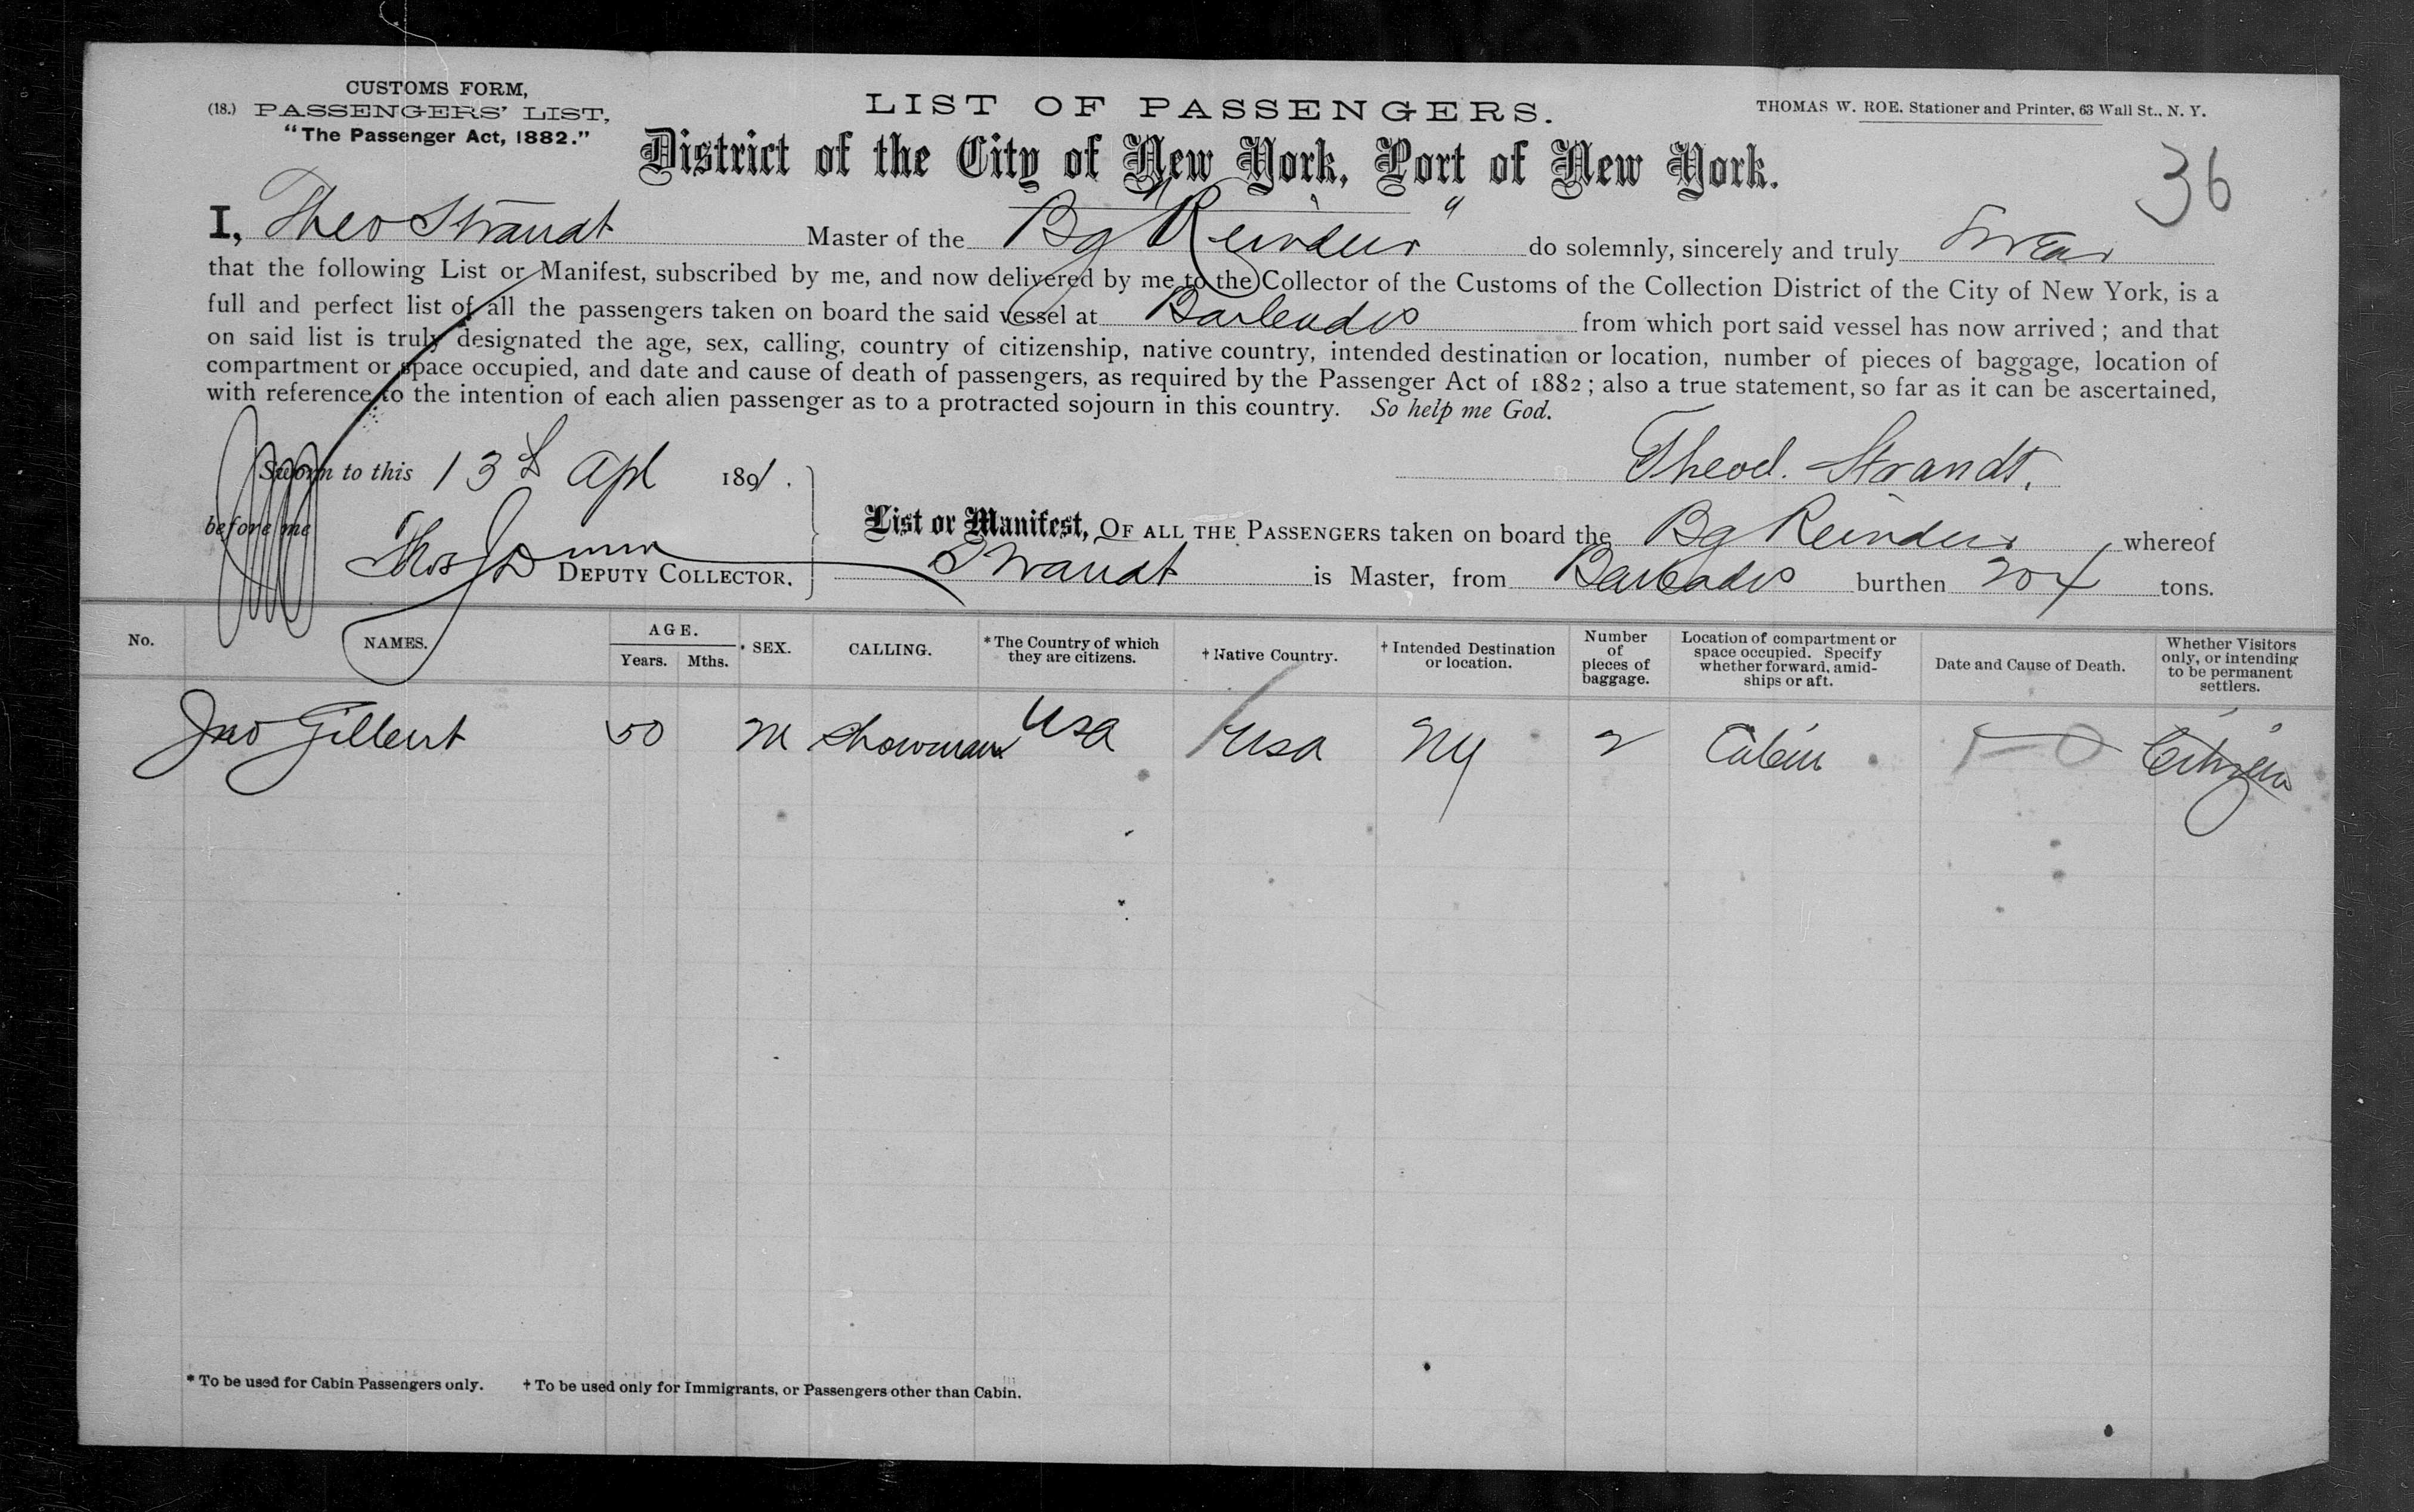 CUSTOMS FORM,
(18.) PASSENGERS' LIST,
"The Passenger Act, 1882."
LIST OF PASSENGERS.
THOMAS W. ROE. Stationer and Printer, 63 Wall St., N. Y.
District of the City of New York, Port of New York.
36
I, Theo Strandt Master of the Bg "Reindeer" do solemnly, sincerely and truly Swear
that the following List or Manifest, subscribed by me, and now delivered by me to the Collector of the Customs of the Collection District of the City of New York, is a
full and perfect list of all the passengers taken on board the said vessel at Barbados from which port said vessel has now arrived; and that
on said list is truly designated the age, sex, calling, country of citizenship, native country, intended destination or location, number of pieces of baggage, location of
compartment or space occupied, and date and cause of death of passengers, as required by the Passenger Act of 1882; also a true statement, so far as it can be ascertained,
with reference to the intention of each alien passenger as to a protracted sojourn in this country. So help me God.
Sworn to this 13th Apl 1891.
Theod. Strandt.
before me
Thos
DEPUTY COLLECTOR.
List or Manifest, OF ALL THE PASSENGERS taken on board the Bg Reindeer whereof
Strandt is Master, from Barbados burthen 204 tons.
No. NAMES. AGE. Years. Mths. SEX. CALLING. * The Country of which they are citizens. † Native Country. † Intended Destination or location. Number of pieces of baggage. Location of compartment or space occupied. Specify whether forward, amidships or aft. Date and Cause of Death. Whether Visitors only, or intending to be permanent settlers.
Jno Gilbert 50 M Showman Usa Usa NY 2 Cabin 1—0 Citizen
* To be used for Cabin Passengers only. † To be used only for Immigrants, or Passengers other than Cabin.